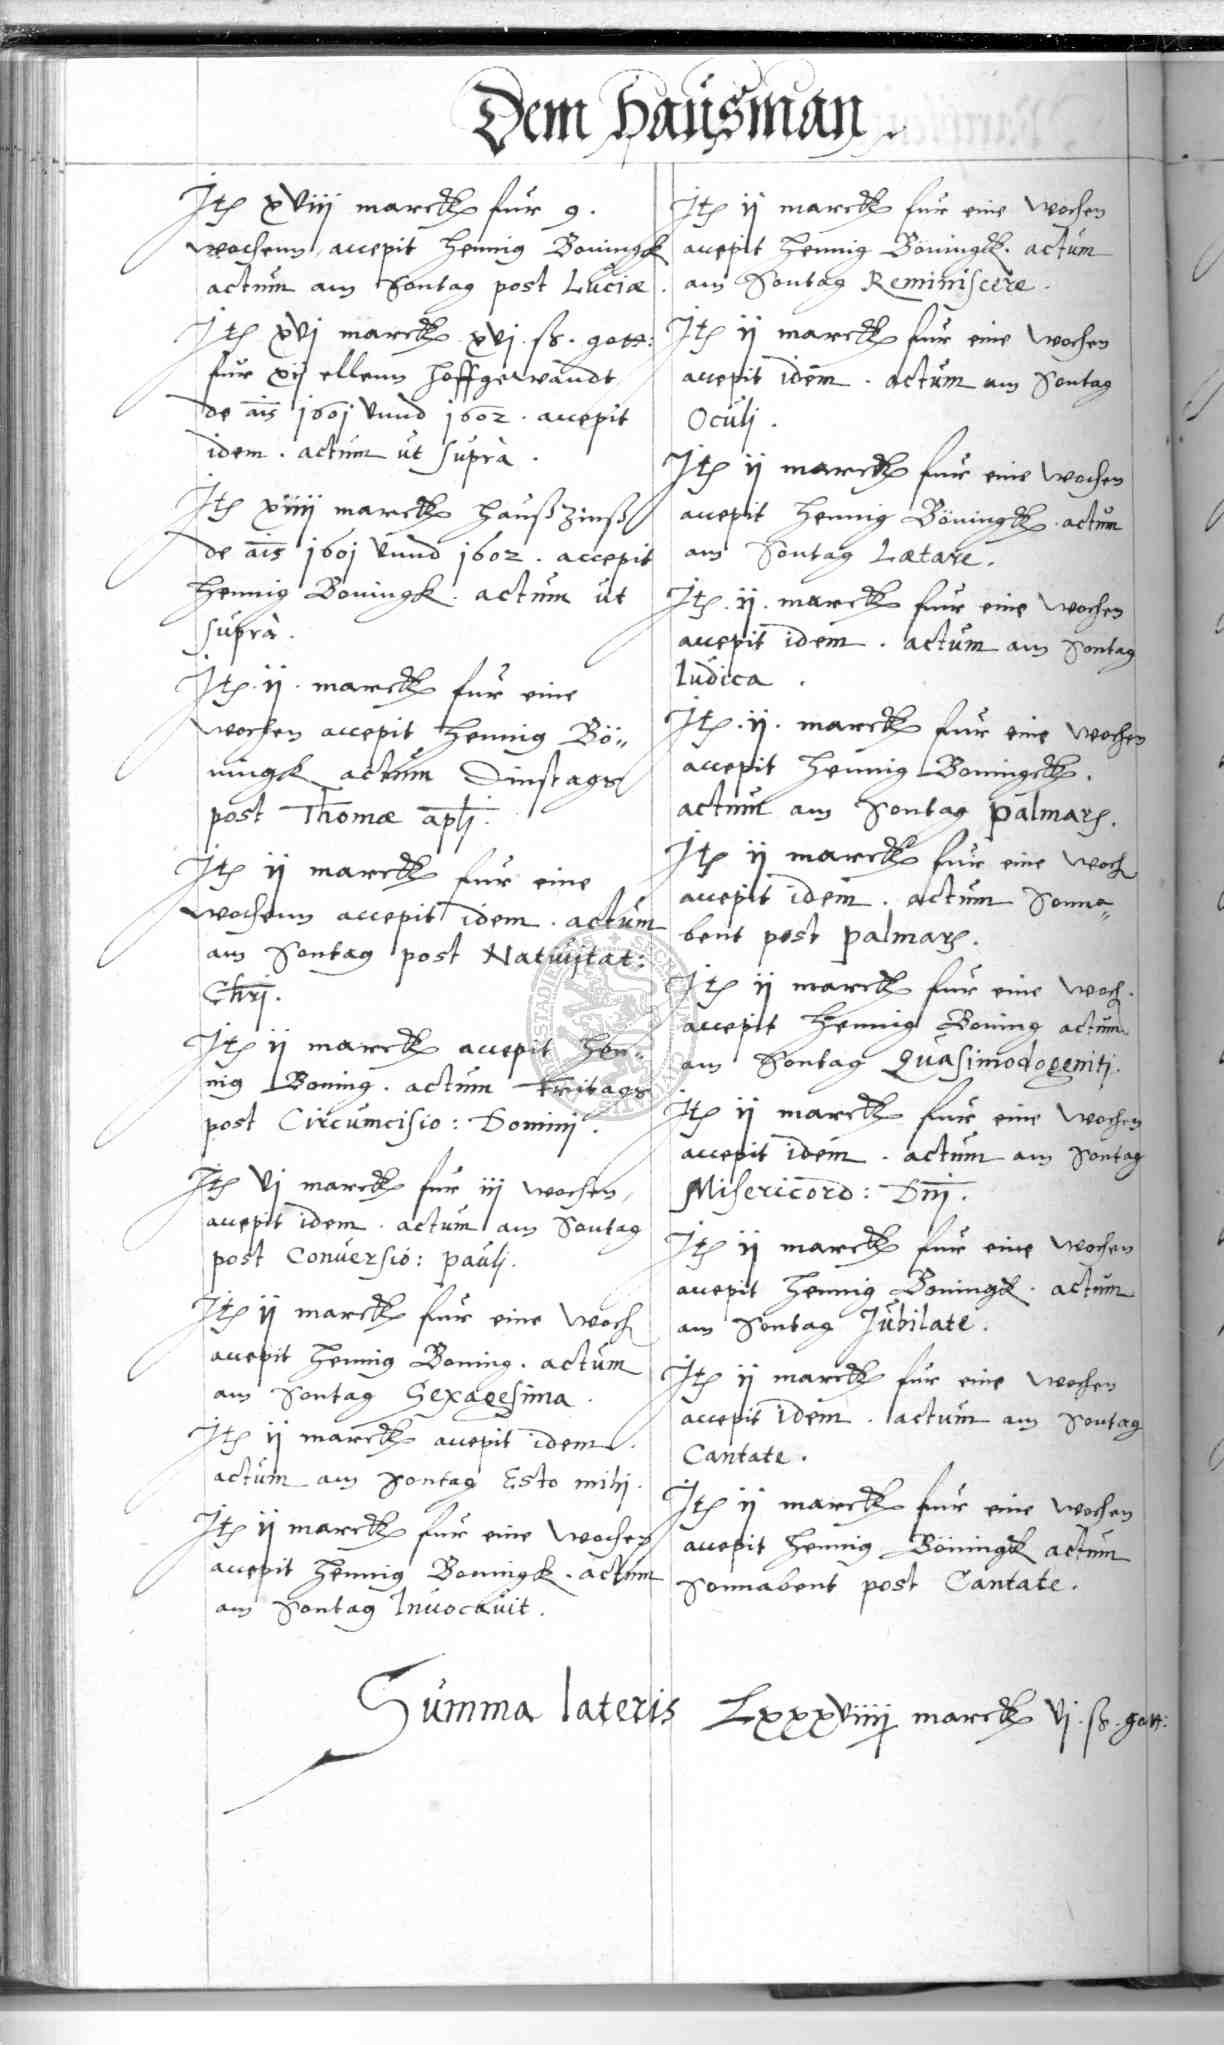 Dem Haußman.
Itē xviij marck für 9.
wochenn, accepit Hennig Boningk
actum am Sontag post Luciæ.
Itē xvj marck xvj. ß. gott:
für xij ellenn Hoffgewandt
de ais 1601 vnnd 1602. accepit
idem. actum ut suprà.
Itē xiiij marck Haußzinß
de ais 1601 vnnd 1602. accepit
Hennig Boningk. actum ut
suprà.
Itē. ij. marck für eine
wochen accepit Hennig Bö„
ningk actum Dinstags
post Thomæ apli.
Itē ij marck für eine
wochenn accepit idem. actum
am Sontag post Natiuitat:
Chri.
Itē ij marck accepit Hen„
nig Boning. actum Freitags
post Circumcisio: Domini.
Itē vj marck für iij wochen,
accepit idem. actum am Sontag
post Conuersio: Pauli.
Itē ij marck für eine woch
accepit Hennig Boning. actum
am Sontag Sexagesima.
Itē ij marck accepit idem.
actum am Sontag Esto mihi.
Itē ij marck für eine wochen
accepit Hennig Boningk. actum
am Sontag Inuocauit.
Itē ij marck für eine wochen
accepit Hennig Böningk. actum
am Sontag Reminiscere.
Itē ij marck für eine wochen
accepit idem. actum am Sontag
Oculi.
Itē ij marck für eine wochen
accepit Hennig Böningk. actum
am Sontag Lætare.
Itē. ij. marck für eine wochen
accepit idem. actum am Sontag
Iudica.
Itē. ij. marck für eine wochen
accepit Hennig Boningck.
actum am Sontag Palmarū.
Itē ij marck für eine woch
accepit idem. actum Sonna„
bent post Palmarū.
Itē ij marck für eine woch.
accepit Hennig Boning actum
am Sontag Quasimodogeniti.
Itē ij marck für eine wochen
accepit idem. actum am Sontag
Misericord: Dni.
Itē ij marck für eine wochen
accepit Hennig Boningk. actum
am Sontag Jubilate.
Itē ij marck für eine wochen
accepit idem. actum am Sontag
Cantate.
Itē ij marck für eine wochen
accepit Hennig Böningk actum
Sonnabent post Cantate.
Summa lateris Lxxxviiij marck vj. ß. gott: